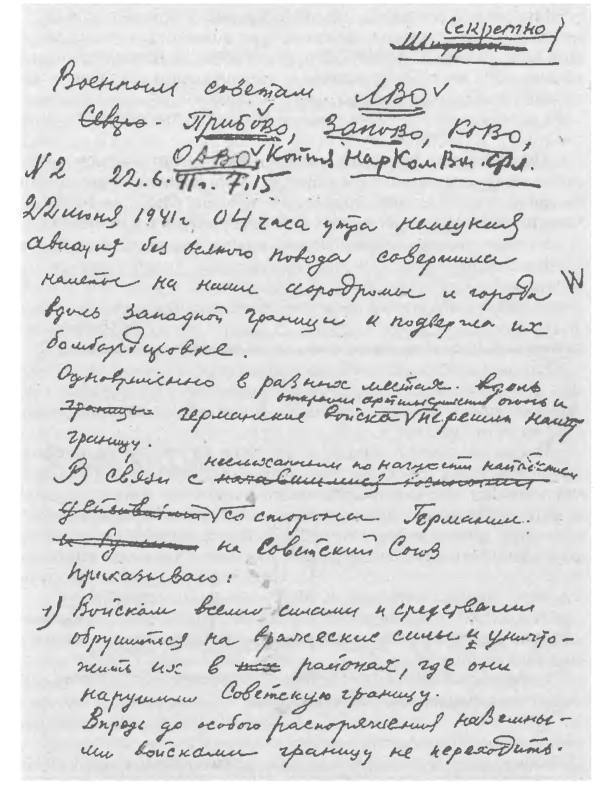 Секретно
Военным советам ЛВО
Прибово, Запово,Ково,
ОДВО, Копия НарКомВн.Фл.
N2 22.6.41г. 7.15
22 июня 1941г. 04 часа утра немецкая
авиация без всякого повода совершила
налеты на наши аэродромы и города
вдоль западной границы и подвергла их
бомбардировке.
Одновременно в разных местах
открыли артиллерийский огонь и
германские войска перешли нашу
границу.
неслыханным по наглости нападением
В связи с
со стороны Германии
на Советский Союз
Приказываю:
1) Войскам всеми силами и средствами
обрушиться на вражеские силы и уничто-
жить их в районах, где они
нарушили Советскую границу.
Впредь до особого распоряжения наземны-
ми войсками границу не переходить.